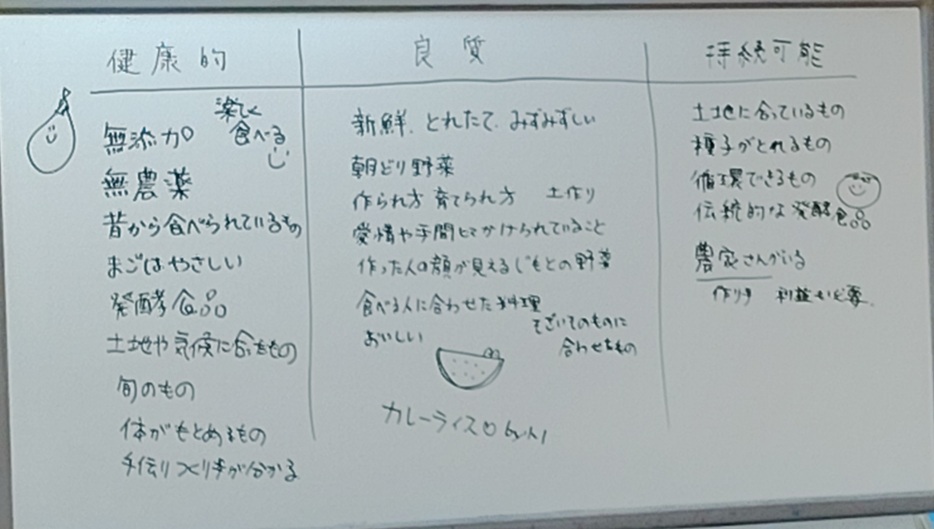 健康的
楽しく
食べる
無添加
無農薬
昔から食べられているもの
まごはやさしい
発酵食品
土地や気候に合ったもの
旬のもの
体がもとめるもの
つくり手が分かる
良質
新鮮、とれたて、みずみずしい
朝どり野菜
作られ方 育てられ方 土作り
愛情や手間ヒマかけられていること
作った人の顔が見えるじもとの野菜
食べる人に合わせた料理
おいしい
のものに
合わせたもの
カレーライス
持続可能
土地に合っているもの
種子がとれるもの
循環できるもの
伝統的な発酵食品
農家さんがいる
作り手 利益も必要